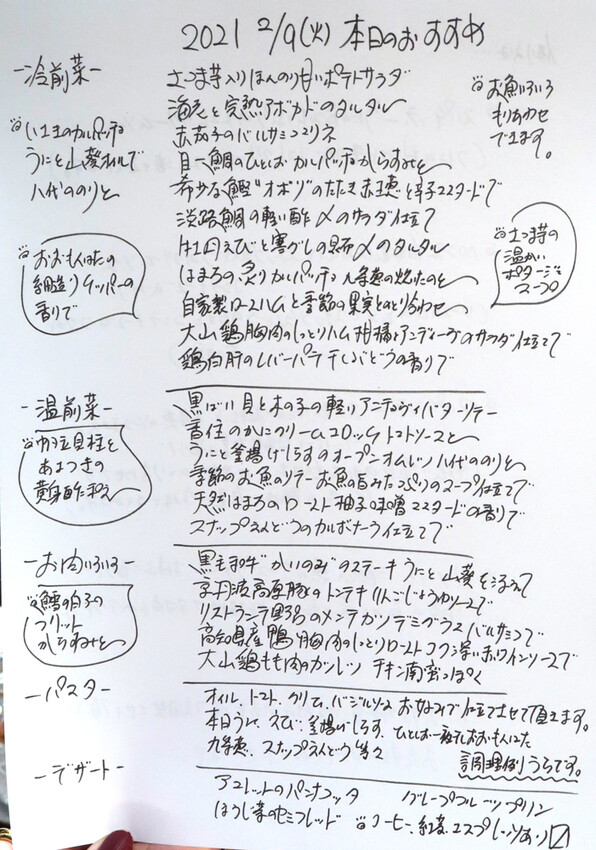 2021 2/9(火) 本日のおすすめ
-冷前菜-
さつま芋入りほんのり甘いポテトサラダ
海老と完熟アボカドのタルタル
赤茄子のバルサミコマリネ
目一鯛のひとしおカルパッチョ しらすみそと
希少な鰹"オボソ"のたたき 赤玉葱と辛子マスタードで
淡路鯛の軽い酢〆のサラダ仕立て
牡丹えびと寒ざしの昆布〆のタルタル
はまちの炙りカルパッチョ 九条葱の焼いたのと
自家製ロースハムと季節の果実とのとり合わせ
大山鶏胸肉のしっとりハム 柑橘とアンディーヴのサラダ仕立てで
鶏白肝のレバーパテ 干しぶどうの香りで
いさきのカルパッチョ
うにと山葵オイルで
八代ののりと
おおもんはたの
細造り ケッパーの
香りで
お魚いろいろ
もりあわせ
できます。
さつま芋の
温かい
ポタージュ
スープ
-温前菜-
黒ばい貝と木の子の軽いアンチョヴィバターソテー
香住のかにクリームコロッケ トマトソースと
うにと釜揚げしらすのオープンオムレツ 八代ののりと
季節のお魚のソテー お魚の旨みたっぷりのスープ仕立てで
天然はまちのロースト 柚子味噌マスタードの香りで
スナップえんどうのカルボナーラ仕立てで
帆立貝柱と
あさつきの
黄身酢和え
-お肉いろいろ-
黒毛和牛"かいのみ"のステーキ うにと山葵を添えて
京丹波高原豚のトンテキ りんごじょうゆソースで
リストランテ風のメンチカツ デミグラスバルサミコで
高知県産鴨胸肉のしっとりロースト コク深い赤ワインソースで
大山鶏もも肉のカツレツ チキン南蛮っぽく
鱈の白子の
フリット
からすみと
-パスタ-
オイル、トマト、クリーム、バジルソース お好みで仕立てさせて頂きます。
本日うに、えび、釜揚げしらす、ひとしお一夜干しおおもんはた
九条葱、スナップえんどう 等々
調理例うらです。
-デザート-
アマレットのパンナコッタ
グレープフルーツプリン
ほうじ茶のセミフレッド
コーヒー、紅茶、エスプレッソあり